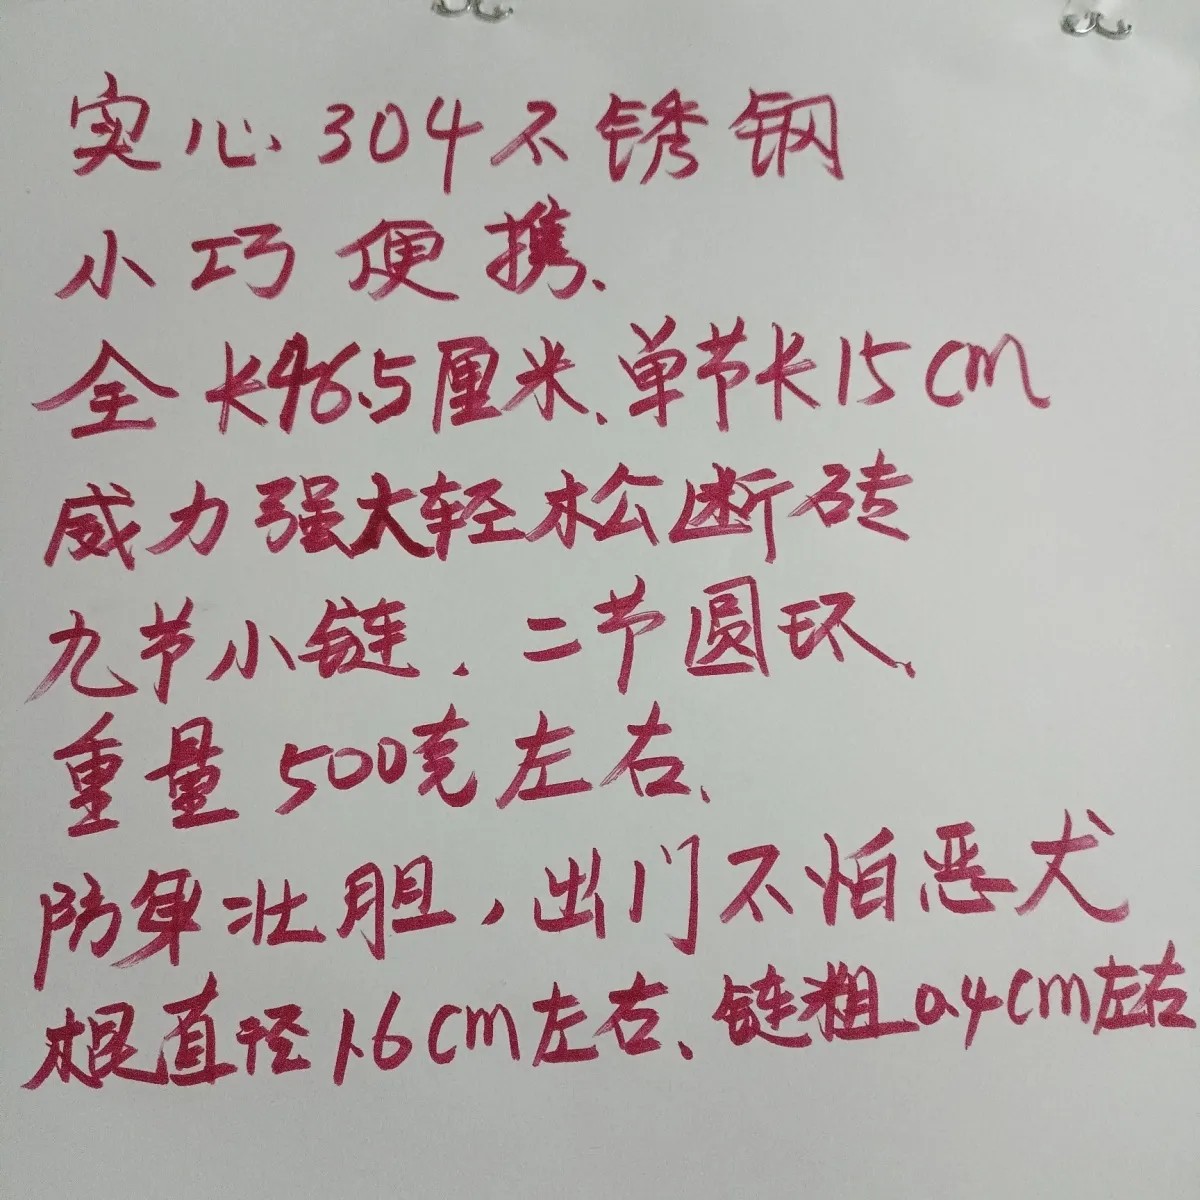 实心304不锈钢
小巧便携.
全长46.5厘米.单节长15cm
威力强大轻松断砖
九节小链.二节圆环.
重量500克左右.
防身壮胆,出门不怕恶犬
棍直径1.6cm左右.链粗0.4cm左右